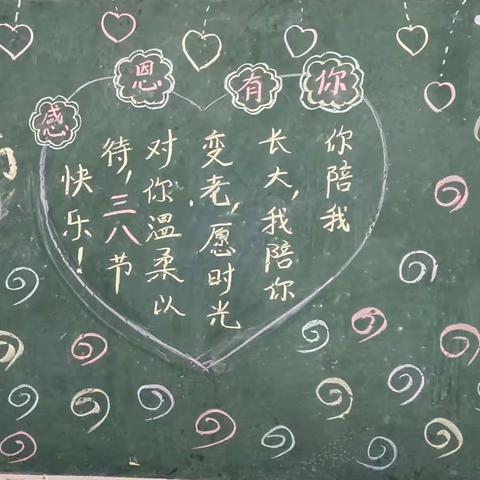 感恩有你
你陪我
长大,我陪你
变老,愿时光
对你温柔以
待,三八节
快乐!